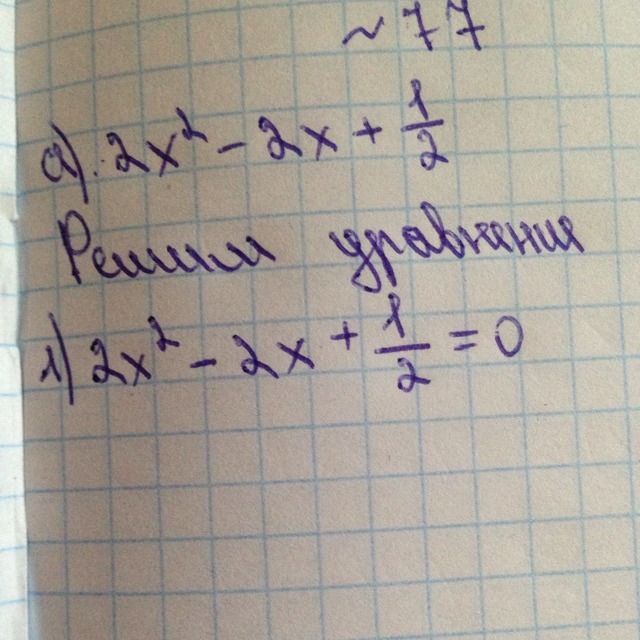 ~77
а). 2x² - 2x + 1/2
Решим уравнения
1) 2x² - 2x + 1/2 = 0